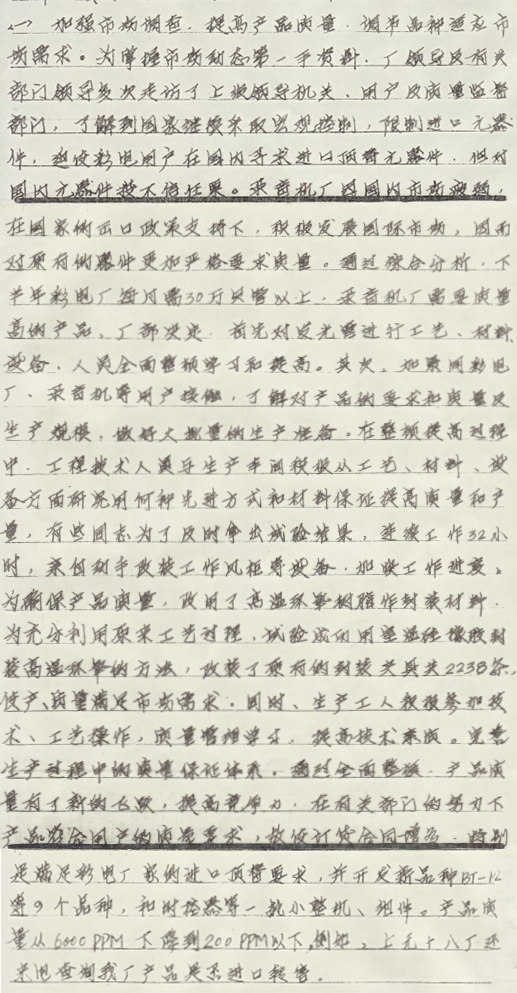 (一) 加强市场调查，提高产品质量，调节品种适应市
场需求。为掌握市场动态第一手资料，厂领导及有关
部门领导多次走访了上级领导机关、用户及质量监督
部门，了解到国家继续采取宏观控制，限制进口元器
件，迫使彩电用户在国内寻求进口顶替元器件，但对
国内元器件技术信任差。录音机厂因国内市场疲软，
在国家的出口政策支持下，积极发展国际市场，因而
对原有的器件更加严格要求质量。通过综合分析，下
半年彩电厂每月需30万只管以上，录音机厂需要质量
高的产品。厂部决定，首先对发光管进行工艺、材料、
设备、人员全面整顿学习和提高。其次，加紧同彩电
厂、录音机等用户接触，了解对产品的要求和质量及
生产规模，做好大批量的生产准备。在整顿提高过程
中，工程技术人员与生产车间积极从工艺、材料、设
备方面研究用何种先进方式和材料保证提高质量和产
量，有些同志为了及时拿出试验结果，连续工作32小
时，亲自动手改装工作风柜等设备，加快工作进度。
为确保产品质量，改用了高温环氧树脂作封装材料，
为充分利用原来工艺过程，试验成功用室温硅橡胶封
装高温环氧的方法，改装了原有的封装夹具共2238条，
使产、质量满足市场需求。同时、生产工人积极参加技
术、工艺操作，质量管理学习，提高技术素质。完善
生产过程中的质量保证体系。通过全面整顿，产品质
量有了新的飞跃，提高竞争力，在有关部门的努力下
产品符合用户的质量要求，故使订货合同增多，特别
是满足彩电厂家的进口顶替要求，并开发新品种BT-12
等9个品种，和时控器等一批小整机、组件。产品质
量从6000PPM下降到200PPM以下，例如，上无十八厂还
来电查询我厂产品是否进口转售。